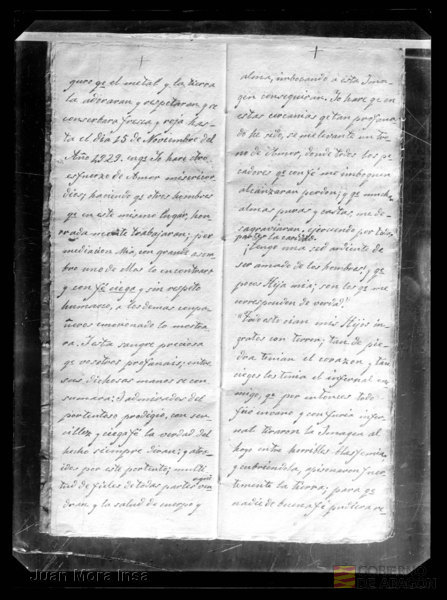 guro qe el metal y la tierra
la adoraran y respetaran, y se
conserbara fresca, y roja has-
ta el dia 25 de Noviembre del
Año 1929. enqe Yo hare otro
esfuerzo de Amor misericor
dios, haciendo qe otros hombres
qe en este mismo lugar, hon-
rada mente trabajaran; por
mediacion Mia, con grande asom-
bro uno de ellos lo encontrara
y con fé ciega, y sin respeto
humano, a los demas conpa-
ñeros conmovado lo mostra
ra. Y esta sangre preciosa
qe vosotros profanais; entre
sus dichosas manos se con
sumara: Y admirados del
portentoso prodigio, con sen
cillez y ciega fé la verdad del
hecho siempre diran; y atraí-
dos por este portento, multi
tud de fieles de todas partes aqui ven
dran y la salud de cuerpo y
alma, inbocando a esta Ima-
gen conseguiran. Yo hare qe en
estas cercanias qe tan profana
do he sido, se me levante un tro
no de Amor, donde todos los pe-
cadores qe con fé me imboquen
alcanzaran perdon; y qe muchas
almas puras y castas, me de-
sagraviaran, ejerciendo por todas
partes la caridad.
¡Tengo una sed ardiente de
ser amado de los hombres; y qe
pocos Hija mia; son los qe me
corresponden de verdad!
"Todo esto oian mis Hijos in
gratos con terror; tan de pie-
dra tenian el corazon y tan
ciegos los tenia el infernal ene
migo, qe por entonces todo
fué en vano y con furia infer
nal tiraron la Imagen al
hoyo entre horribles blasfemias
y cubriendola, apisonaron fuer-
temente la tierra; para qe
nadie de buena fé pudiera re
Juan Mora Insa
GOBIERNO
DE ARAGON